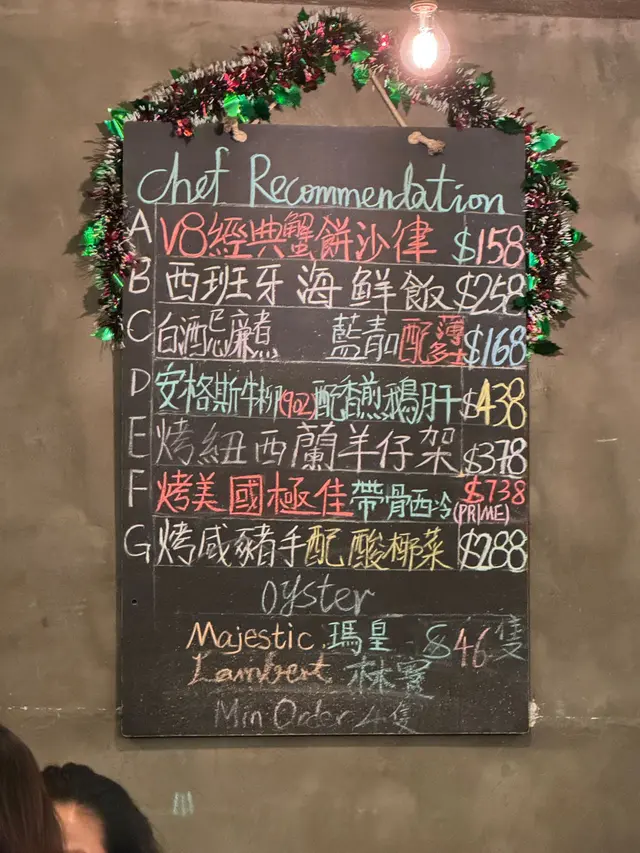 Chef Recommendation
A V8經典蟹餅沙律 $158
B 西班牙海鮮飯 $258
C 白酒忌廉煮 藍青配薄多士 $168
D 安格斯牛柳(9oz)配香煎鵝肝 $438
E 烤紐西蘭羊仔架 $378
F 烤美國極佳帶骨西冷 $738 (PRIME)
G 烤咸豬手配酸椰菜 $288
Oyster
Majestic 瑪皇 $46 隻
Lambert 林寶
Min Order 4隻